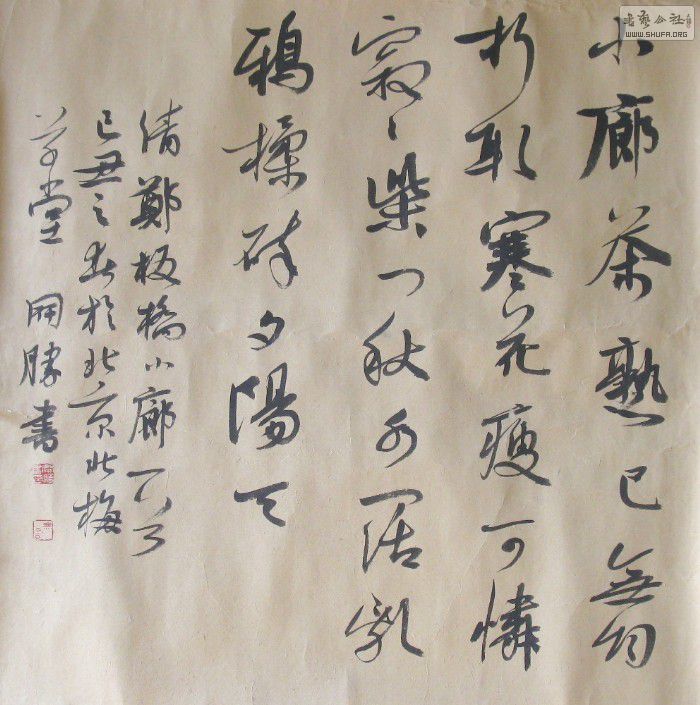 小廊茶熟已無烟
折取寒花瘦可憐
寂〻柴门秋水闊亂
鴉揉碎夕陽天
清鄭板橋小廊一首
己丑之春於北京北梅
草堂 開勝書
書藝公社
WWW.SHUFA.ORG